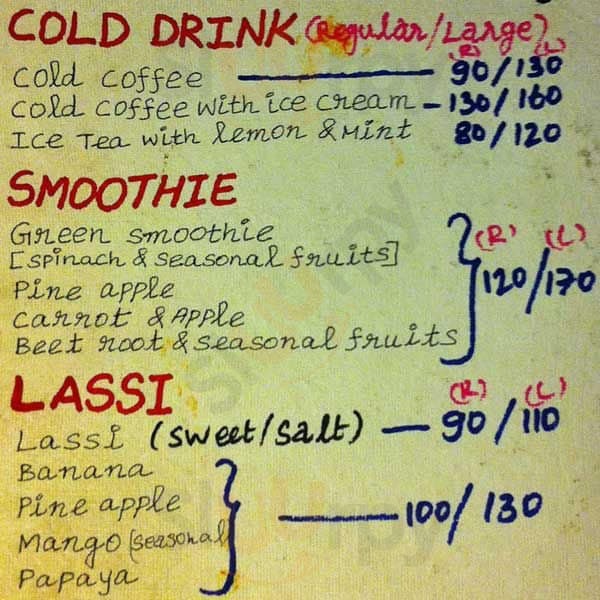 COLD DRINK (Regular/Large)
(R) (L)
Cold coffee 90/130
Cold coffee with ice cream - 130/160
Ice Tea with lemon & Mint 80/120
SMOOTHIE
Green smoothie
[spinach & seasonal fruits]
(R) (L)
Pine apple
120/170
Carrot & Apple
Beet root & seasonal fruits
LASSI
(R) (L)
Lassi (sweet/salt) — 90/110
Banana
Pine apple
100/130
Mango (seasonal)
Papaya